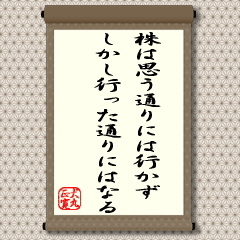 株は思う通りには行かず
しかし行った通りにはなる